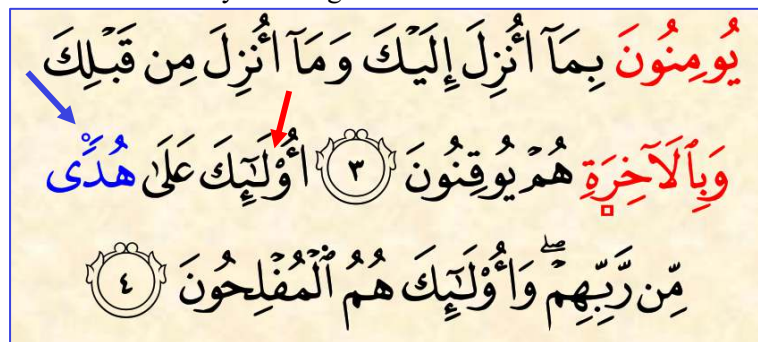 يُومِنُونَ بِمَآ أُنزِلَ إِلَيْكَ وَمَآ أُنزِلَ مِن قَبْلِكَ
وَبِٱلَآخِرَةِ هُمْ يُوقِنُونَ ٣ أُوْلَـٰٓئِكَ عَلَىٰ هُدًى
مِّن رَّبِّهِمْۖ وَأُوْلَـٰٓئِكَ هُمُ ٱلْمُفْلِحُونَ ٤